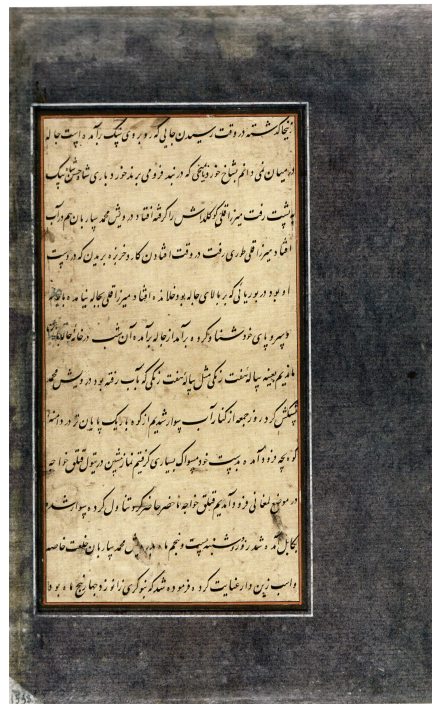 درمیان نمی دانم بشاخ خورد یا بیخی که در بند فرو می برند خورد باری شاه حسن
پشت رفت میرزا قلی کو کلداش را گرفته افتاد درویش محمد ساربان هم در آب
افتاد میرزا قلی طوری رفت در وقت افتادن کارد خربزه بریدن که در دست
او بود در بوریائی که بر بالای جاله بود خلانده افتاد میرزا قلی بجاله نیامده با جامه
وسروپای خود شنا کرده برآمد از جاله برآمده آن شب در خانه جاله
ماندیم بعینه پیاله هفت رنگی مثل پیاله هفت رنگی که بآب رفته بود درویش محمد
پیشکش کرد روز جمعه از کنار آب سوار شدیم از کوه باریک پایان تر در دامنه
کوه بچه فرود آمده بدست خود مسواک بسیاری گرفتیم نماز پیشین در تیول قتلق خواجه
در موضع لمغانی فرود آمدیم قتلق خواجه ماحضر حاضر کرد تناول کرده سوار شده
بکابل آمده شد روز دوشنبه بیست و پنجم ماه درویش محمد ساربان خلعت خاصه
واسب زین دار عنایت کرده فرموده شد که بنوکری زانو زد چهار پنج ماه بود